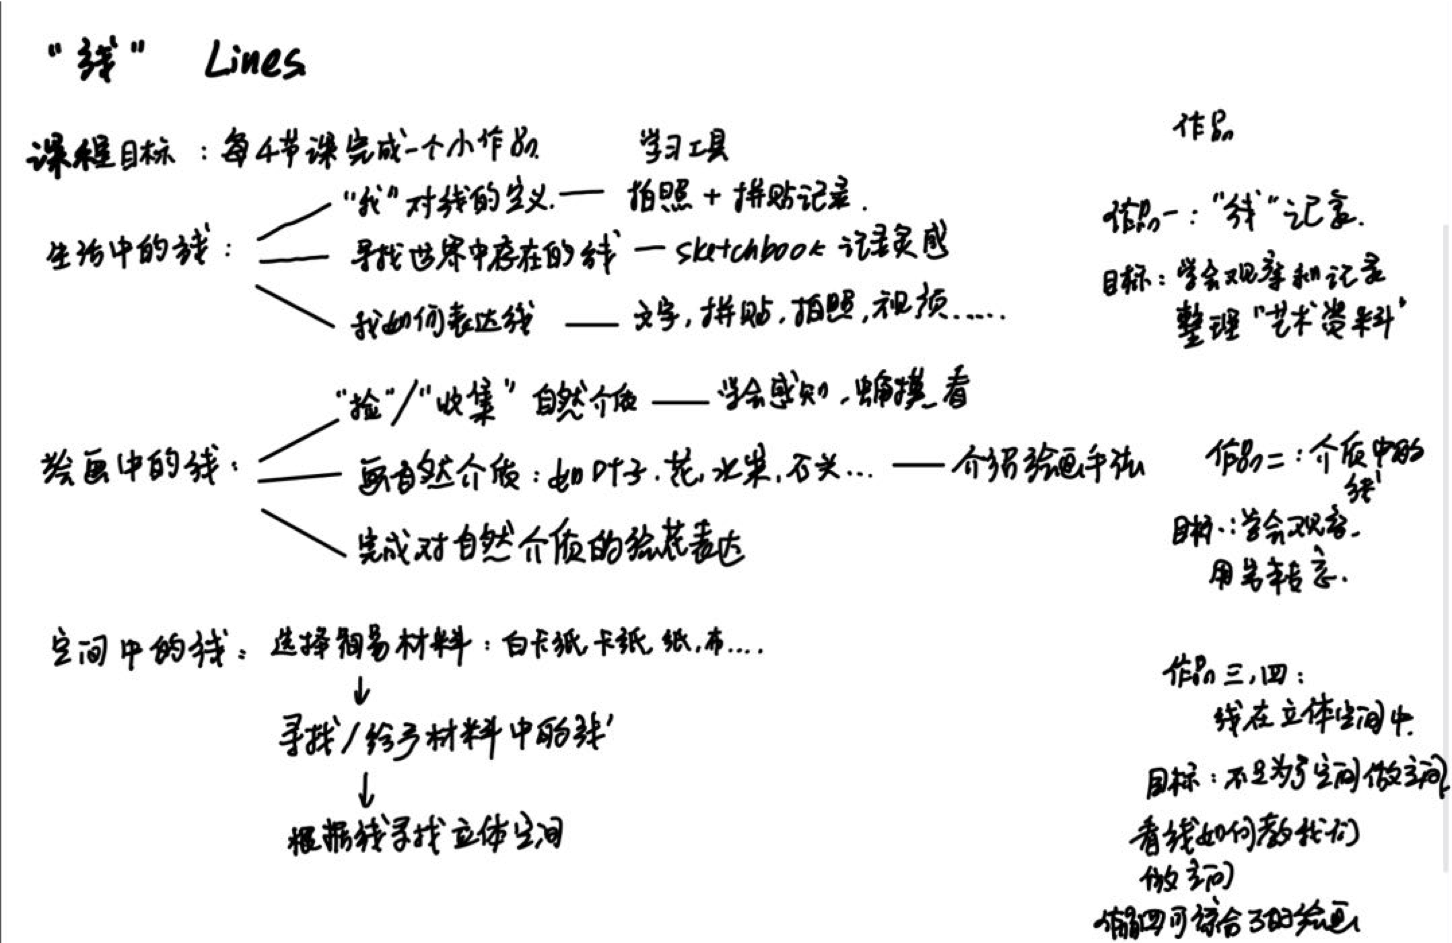 “线” Lines
课程目标：每4节课完成一个小作品 学习工具
生活中的线：
“我”对线的定义. — 拍照 + 拼贴记录.
寻找世界中存在的线 — sketchbook 记录灵感
我如何表达线 — 文字, 拼贴, 拍照, 视频.....
绘画中的线：
“捡”/“收集” 自然介质 — 学会感知, 摸, 看
画自然介质：如叶子. 花, 水果, 石头... — 介绍绘画手法
完成对自然介质的绘花表达
空间中的线：选择简易材料：白卡纸, 卡纸, 纸, 布....
↓
寻找/给予材料中的“线”
↓
根据线寻找立体空间
作品
作品一：“线”记录.
目标：学会观察和记录
整理“艺术资料”
作品二：介质中的
“线”
目标：学会观察.
用
作品三, 四：
线在立体空间中.
目标：不是为了空间做空间,
看线如何教我们
做空间
作品四可结合绘画